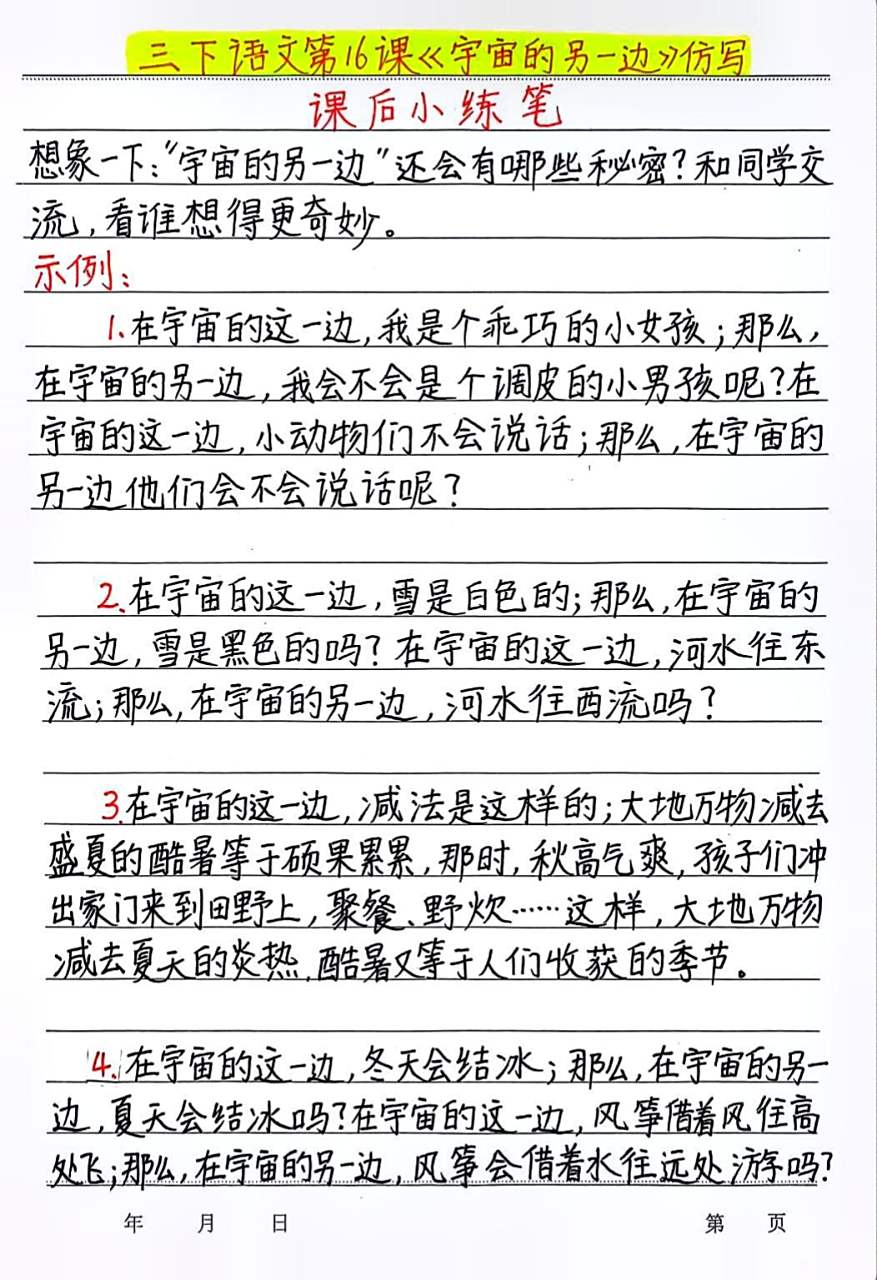 三下语文第16课《宇宙的另一边》仿写
课后小练笔
想象一下:“宇宙的另一边”还会有哪些秘密?和同学交
流,看谁想得更奇妙。
示例:
1.在宇宙的这一边,我是个乖巧的小女孩;那么,
在宇宙的另一边,我会不会是个调皮的小男孩呢?在
宇宙的这一边,小动物们不会说话;那么,在宇宙的
另一边他们会不会说话呢?
2.在宇宙的这一边,雪是白色的;那么,在宇宙的
另一边,雪是黑色的吗?在宇宙的这一边,河水往东
流;那么,在宇宙的另一边,河水往西流吗?
3.在宇宙的这一边,减法是这样的;大地万物减去
盛夏的酷暑等于硕果累累,那时,秋高气爽,孩子们冲
出家门来到田野上,聚餐、野炊……这样,大地万物
减去夏天的炎热,酷暑又等于人们收获的季节。
4.在宇宙的这一边,冬天会结冰;那么,在宇宙的另一
边,夏天会结冰吗?在宇宙的这一边,风筝借着风往高
处飞;那么,在宇宙的另一边,风筝会借着水往远处游吗?
年 月 日 第 页